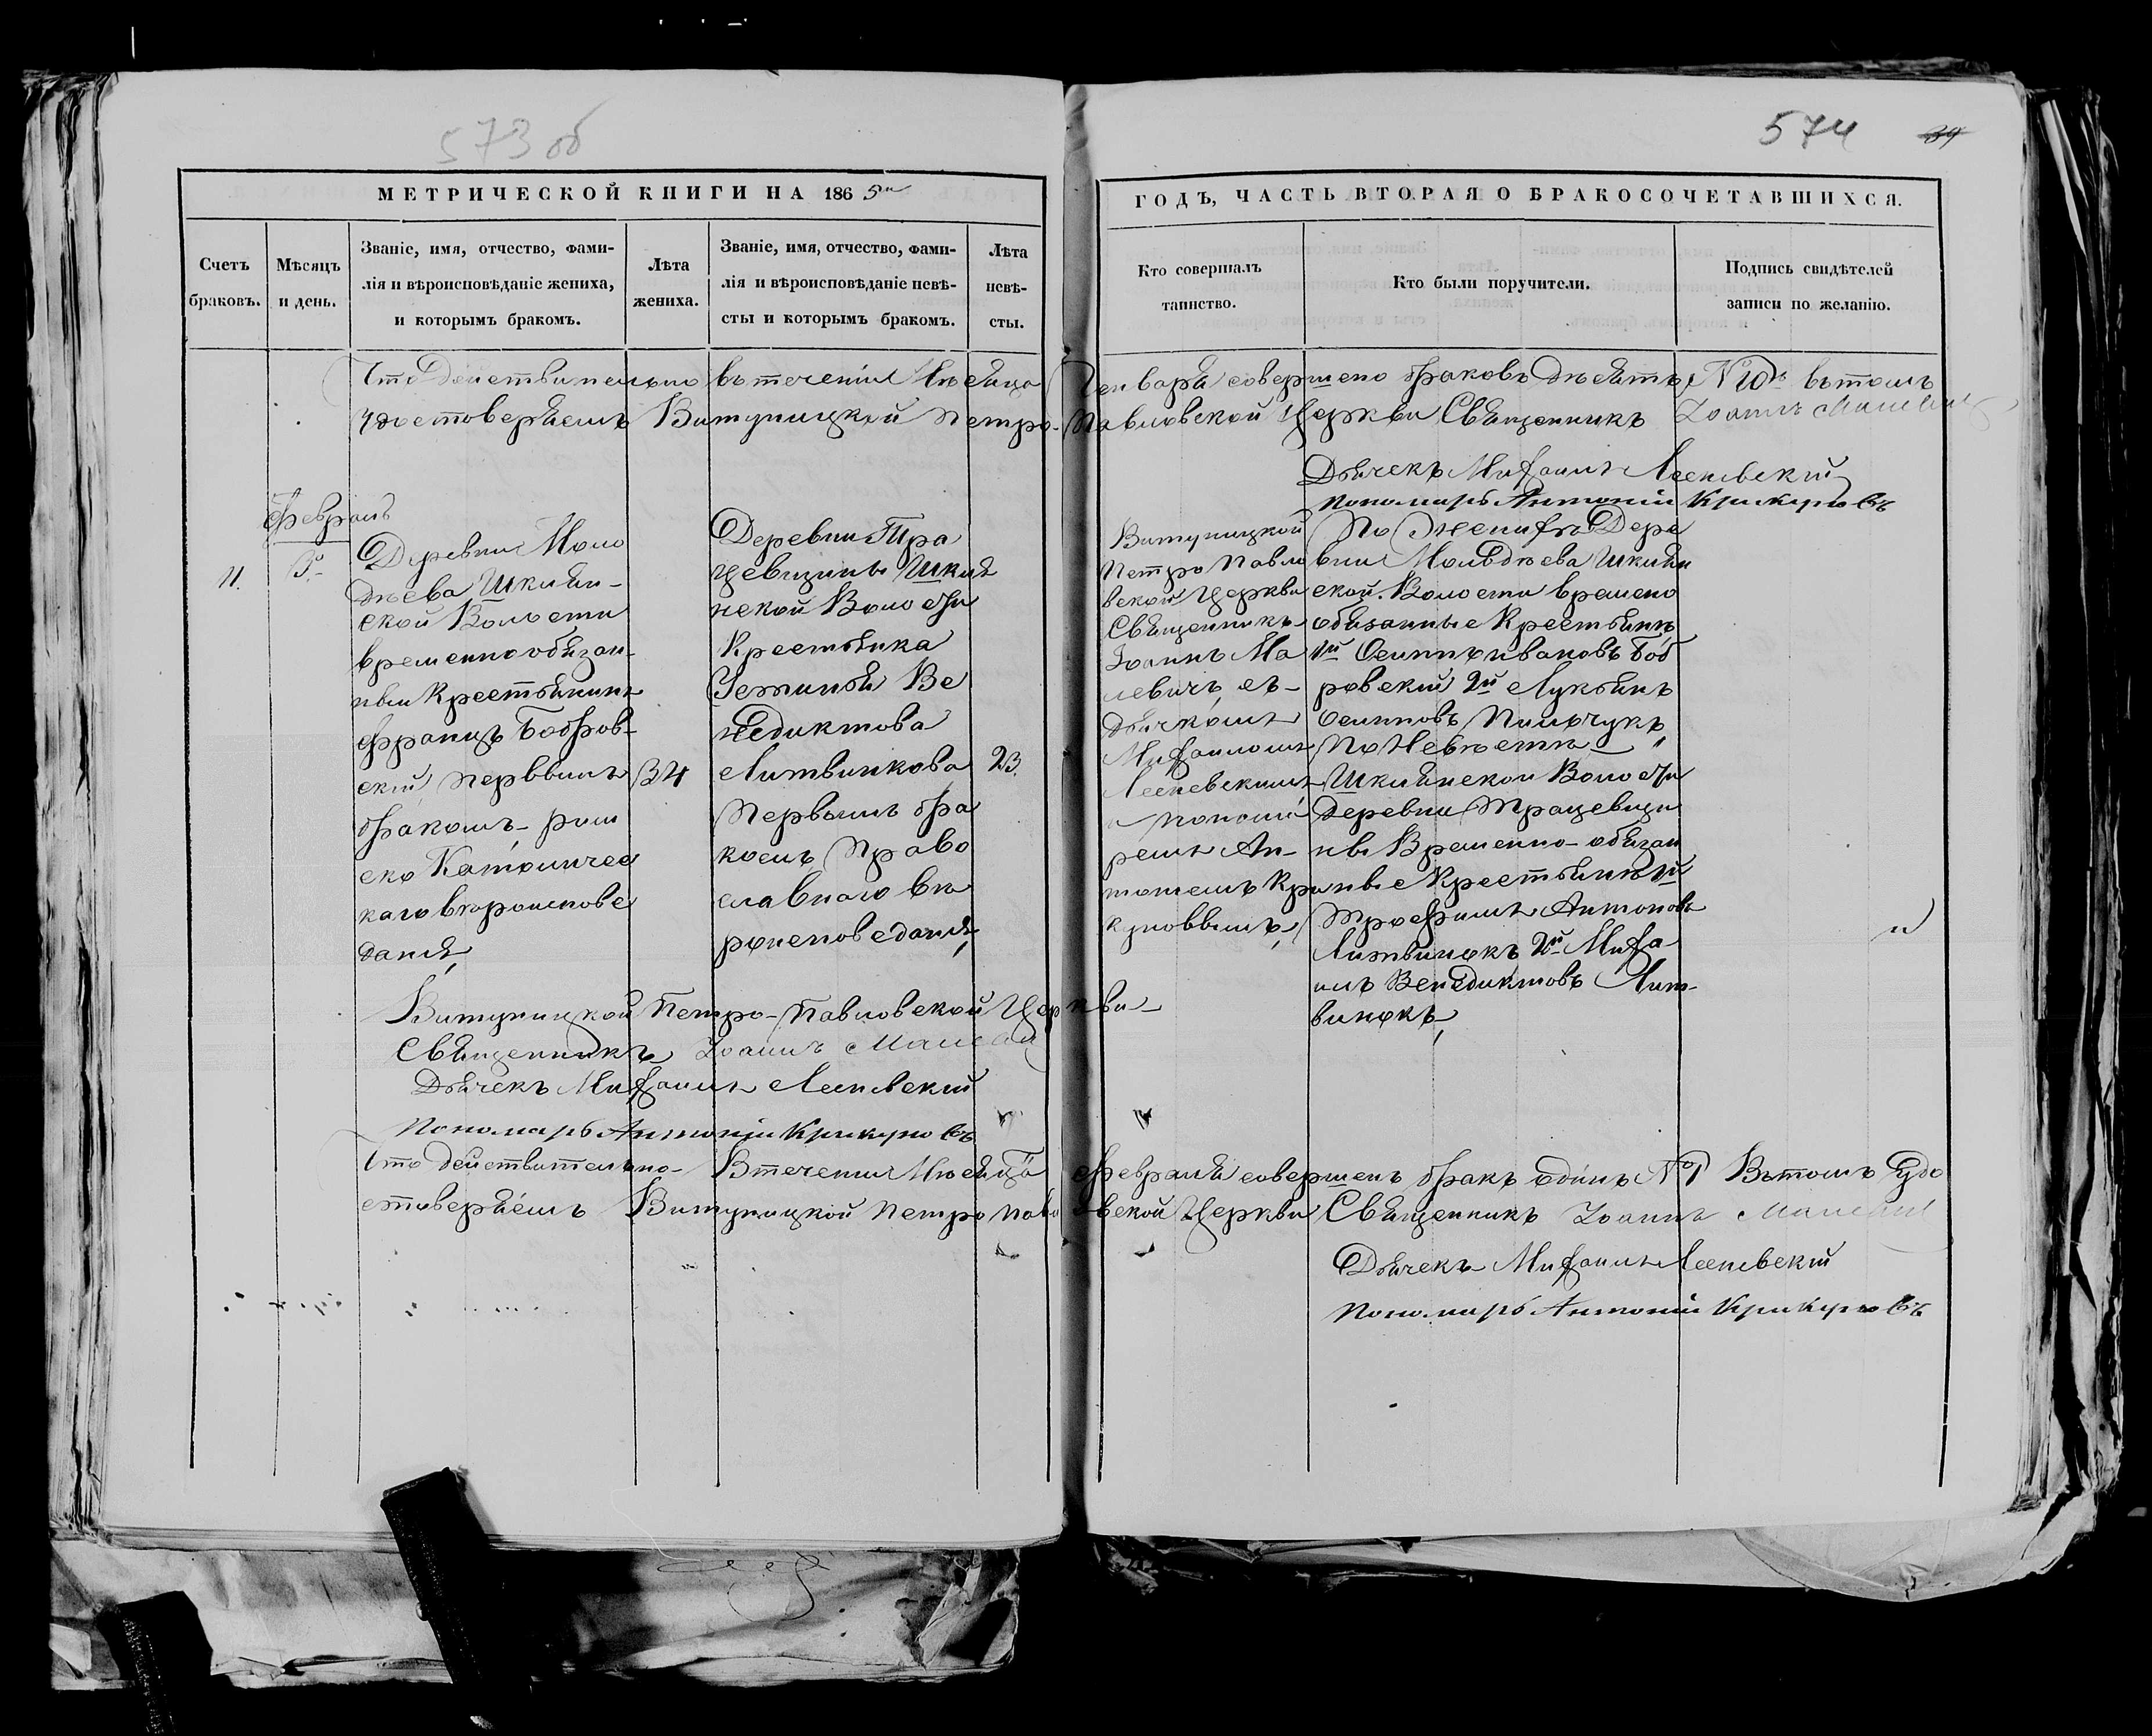 573 об
574 34
МЕТРИЧЕСКОЙ КНИГИ НА 1865й
ГОДЪ, ЧАСТЬ ВТОРАЯ О БРАКОСОЧЕТАВШИХСЯ.
Счетъ браковъ.
Мѣсяцъ и день.
Званіе, имя, отчество, фами-
лія и вѣроисповѣданіе жениха,
и которымъ бракомъ.
Лѣта
жениха.
Званіе, имя, отчество, фами-
лія и вѣроисповѣданіе невѣ-
сты и которымъ бракомъ.
Лѣта
невѣ-
сты.
Кто совершалъ
таинство.
Кто были поручители.
Подпись свидѣтелей
записи по желанію.
Что действительно втеченіи Мѣсяца Генваря совершено браковъ дѣсять, № 10й вътомъ
удостоверяемъ Витуницкой Петро-Павловской Церкви Священникъ Іоаннъ Малевич
Дьячекъ Михаилъ Лесневскій
Пономарь Антоній Крикуновъ
Февраль
11.
Деревни Моло
дѣева Шкілян-
ской Волости
временно обязан-
ный Крестьянинъ
Францъ Бобров-
скій, первымъ
бракомъ, рим
ско Католичес
каго вѣроиспове
данія,
34
Деревни Тра
цевщины Шкля
нской Волости
Крестьянка
Устинья Ве
недиктова
Литвинкова
Первымъ бра
комъ, Право
славнаго вѣ
роисповеданія,
23.
Витуницкой
Петро Павло
вской Церкви
Священникъ
Іоаннъ Ма
левичъ, съ
дьячкомъ
Михаиломъ
Лесневскимъ
и поном
ремъ Ан-
тониемъ Кри
куновымъ,
По Женихѣ Дере
вни Молодѣева Шкілян
ской Волости времено
обязанные Крестьянѣ
1й Осипъ Ивановъ Боб
ровский 2й Лукьянъ
Осиповъ Пилючукъ,
По Невѣстѣ
Шклянской Волости
деревни Трацевщи
ны Временно-обязан
ные Крестьянѣ 1й
Трофимъ Антоновъ
Литвинокъ 2й Миха-
илъ Венедиктовъ Лит-
винокъ,
Витуницкой Петро-Павловской Церкви
Священникъ Іоаннъ Малевич
Дьячекъ Михаилъ Лесневскій
Пономарь Антоній Крикуновъ
Что действительно Втечении Мѣсяца Февраля совершенъ бракъ одинъ № 1 Вътомъ Удо
стоверяемъ Витуницкой Петро Павловской Церкви Священникъ Іоаннъ Малевич
Дьячекъ Михаилъ Лесневскій
Пономарь Антоній Крикуновъ